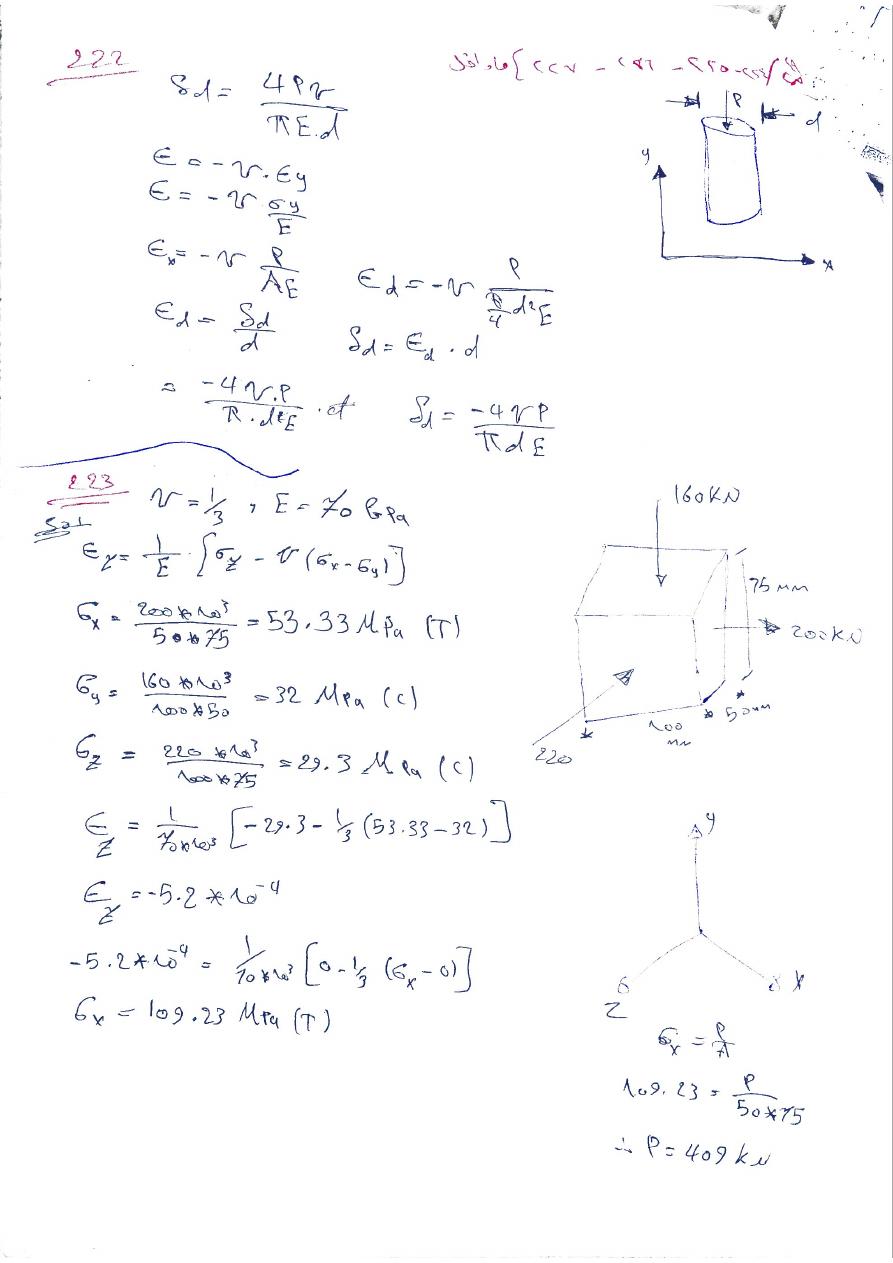 222
δd = 4Pν / πE.d
ϵ = -ν.ϵy
ϵ = -ν σy/E
ϵx = -ν P/AE
ϵd = -ν P / (π/4 d²E)
ϵd = δd/d
δd = ϵd . d
= -4ν.P / π.d²E . d
δd = -4νP / πdE
P
d
y
x
223
Sol
ν = 1/3 , E = 70 GPa
ϵz = 1/E . [σz - ν(σx - σy)]
σx = 200*10³ / 50*75 = 53.33 MPa (T)
σy = 160*10³ / 100*50 = 32 MPa (C)
σz = 220*10³ / 100*75 = 29.3 MPa (C)
ϵz = 1/70*10³ [-29.3 - 1/3 (53.33-32)]
ϵz = -5.2*10⁻⁴
-5.2*10⁻⁴ = 1/70*10³ [0 - 1/3 (σx - 0)]
σx = 109.23 MPa (T)
160KN
75 mm
200KN
50mm
100
mm
220
y
x
Z
σx = P/A
109.23 = P / 50*75
∴ P = 409 kN